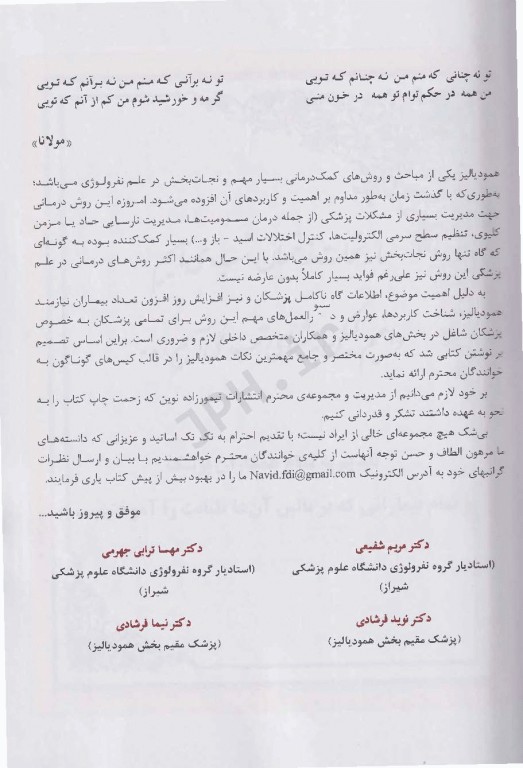 تو نه چنانی که منم من نه چنانم که تویی
تو نه برآنی که منم من نه برآنم که تویی
من همه در حکم توام تو همه در خون منی
گر مه و خورشید شوم من کم از آنم که تویی
«مولانا»
همودیالیز یکی از مباحث و روش‌های کمک‌درمانی بسیار مهم و نجات‌بخش در علم نفرولوژی می‌باشد؛
به‌طوری‌که با گذشت زمان به‌طور مداوم بر اهمیت و کاربردهای آن افزوده می‌شود. امروزه این روش درمانی
جهت مدیریت بسیاری از مشکلات پزشکی (از جمله درمان مسمومیت‌ها، مدیریت نارسایی حاد یا مزمن
کلیوی، تنظیم سطح سرمی الکترولیت‌ها، کنترل اختلالات اسید - باز و...) بسیار کمک‌کننده بوده به گونه‌ای
که گاه تنها روش نجات‌بخش نیز همین روش می‌باشد. با این حال همانند اکثر روش‌های درمانی در علم
پزشکی این روش نیز علی‌رغم فواید بسیار کاملاً بدون عارضه نیست.
به دلیل اهمیت موضوع، اطلاعات گاه ناکامل پزشکان و نیز افزایش روز افزون تعداد بیماران نیازمند
همودیالیز، شناخت کاربردها، عوارض و دستورالعمل‌های مهم این روش برای تمامی پزشکان به خصوص
پزشکان شاغل در بخش‌های همودیالیز و همکاران متخصص داخلی لازم و ضروری است. براین اساس تصمیم
بر نوشتن کتابی شد که به‌صورت مختصر و جامع مهمترین نکات همودیالیز را در قالب کیس‌های گوناگون به
خوانندگان محترم ارائه نماید.
بر خود لازم می‌دانیم از مدیریت و مجموعه‌ی محترم انتشارات تیمورزاده نوین که زحمت چاپ کتاب را به
نحو به عهده داشتند تشکر و قدردانی کنیم.
بی‌شک هیچ مجموعه‌ای خالی از ایراد نیست؛ با تقدیم احترام به تک تک اساتید و عزیزانی که دانسته‌های
ما مرهون الطاف و حسن توجه آنهاست از کلیه‌ی خوانندگان محترم خواهشمندیم با بیان و ارسال نظرات
گرانبهای خود به آدرس الکترونیک Navid.fdi@gmail.com ما را در بهبود بیش از پیش کتاب یاری فرمایند.
موفق و پیروز باشید...
دکتر مریم شفیعی
(استادیار گروه نفرولوژی دانشگاه علوم پزشکی
شیراز)
دکتر مهسا ترابی جهرمی
(استادیار گروه نفرولوژی دانشگاه علوم پزشکی
شیراز)
دکتر نوید فرشادی
(پزشک مقیم بخش همودیالیز)
دکتر نیما فرشادی
(پزشک مقیم بخش همودیالیز)
JPH.ir